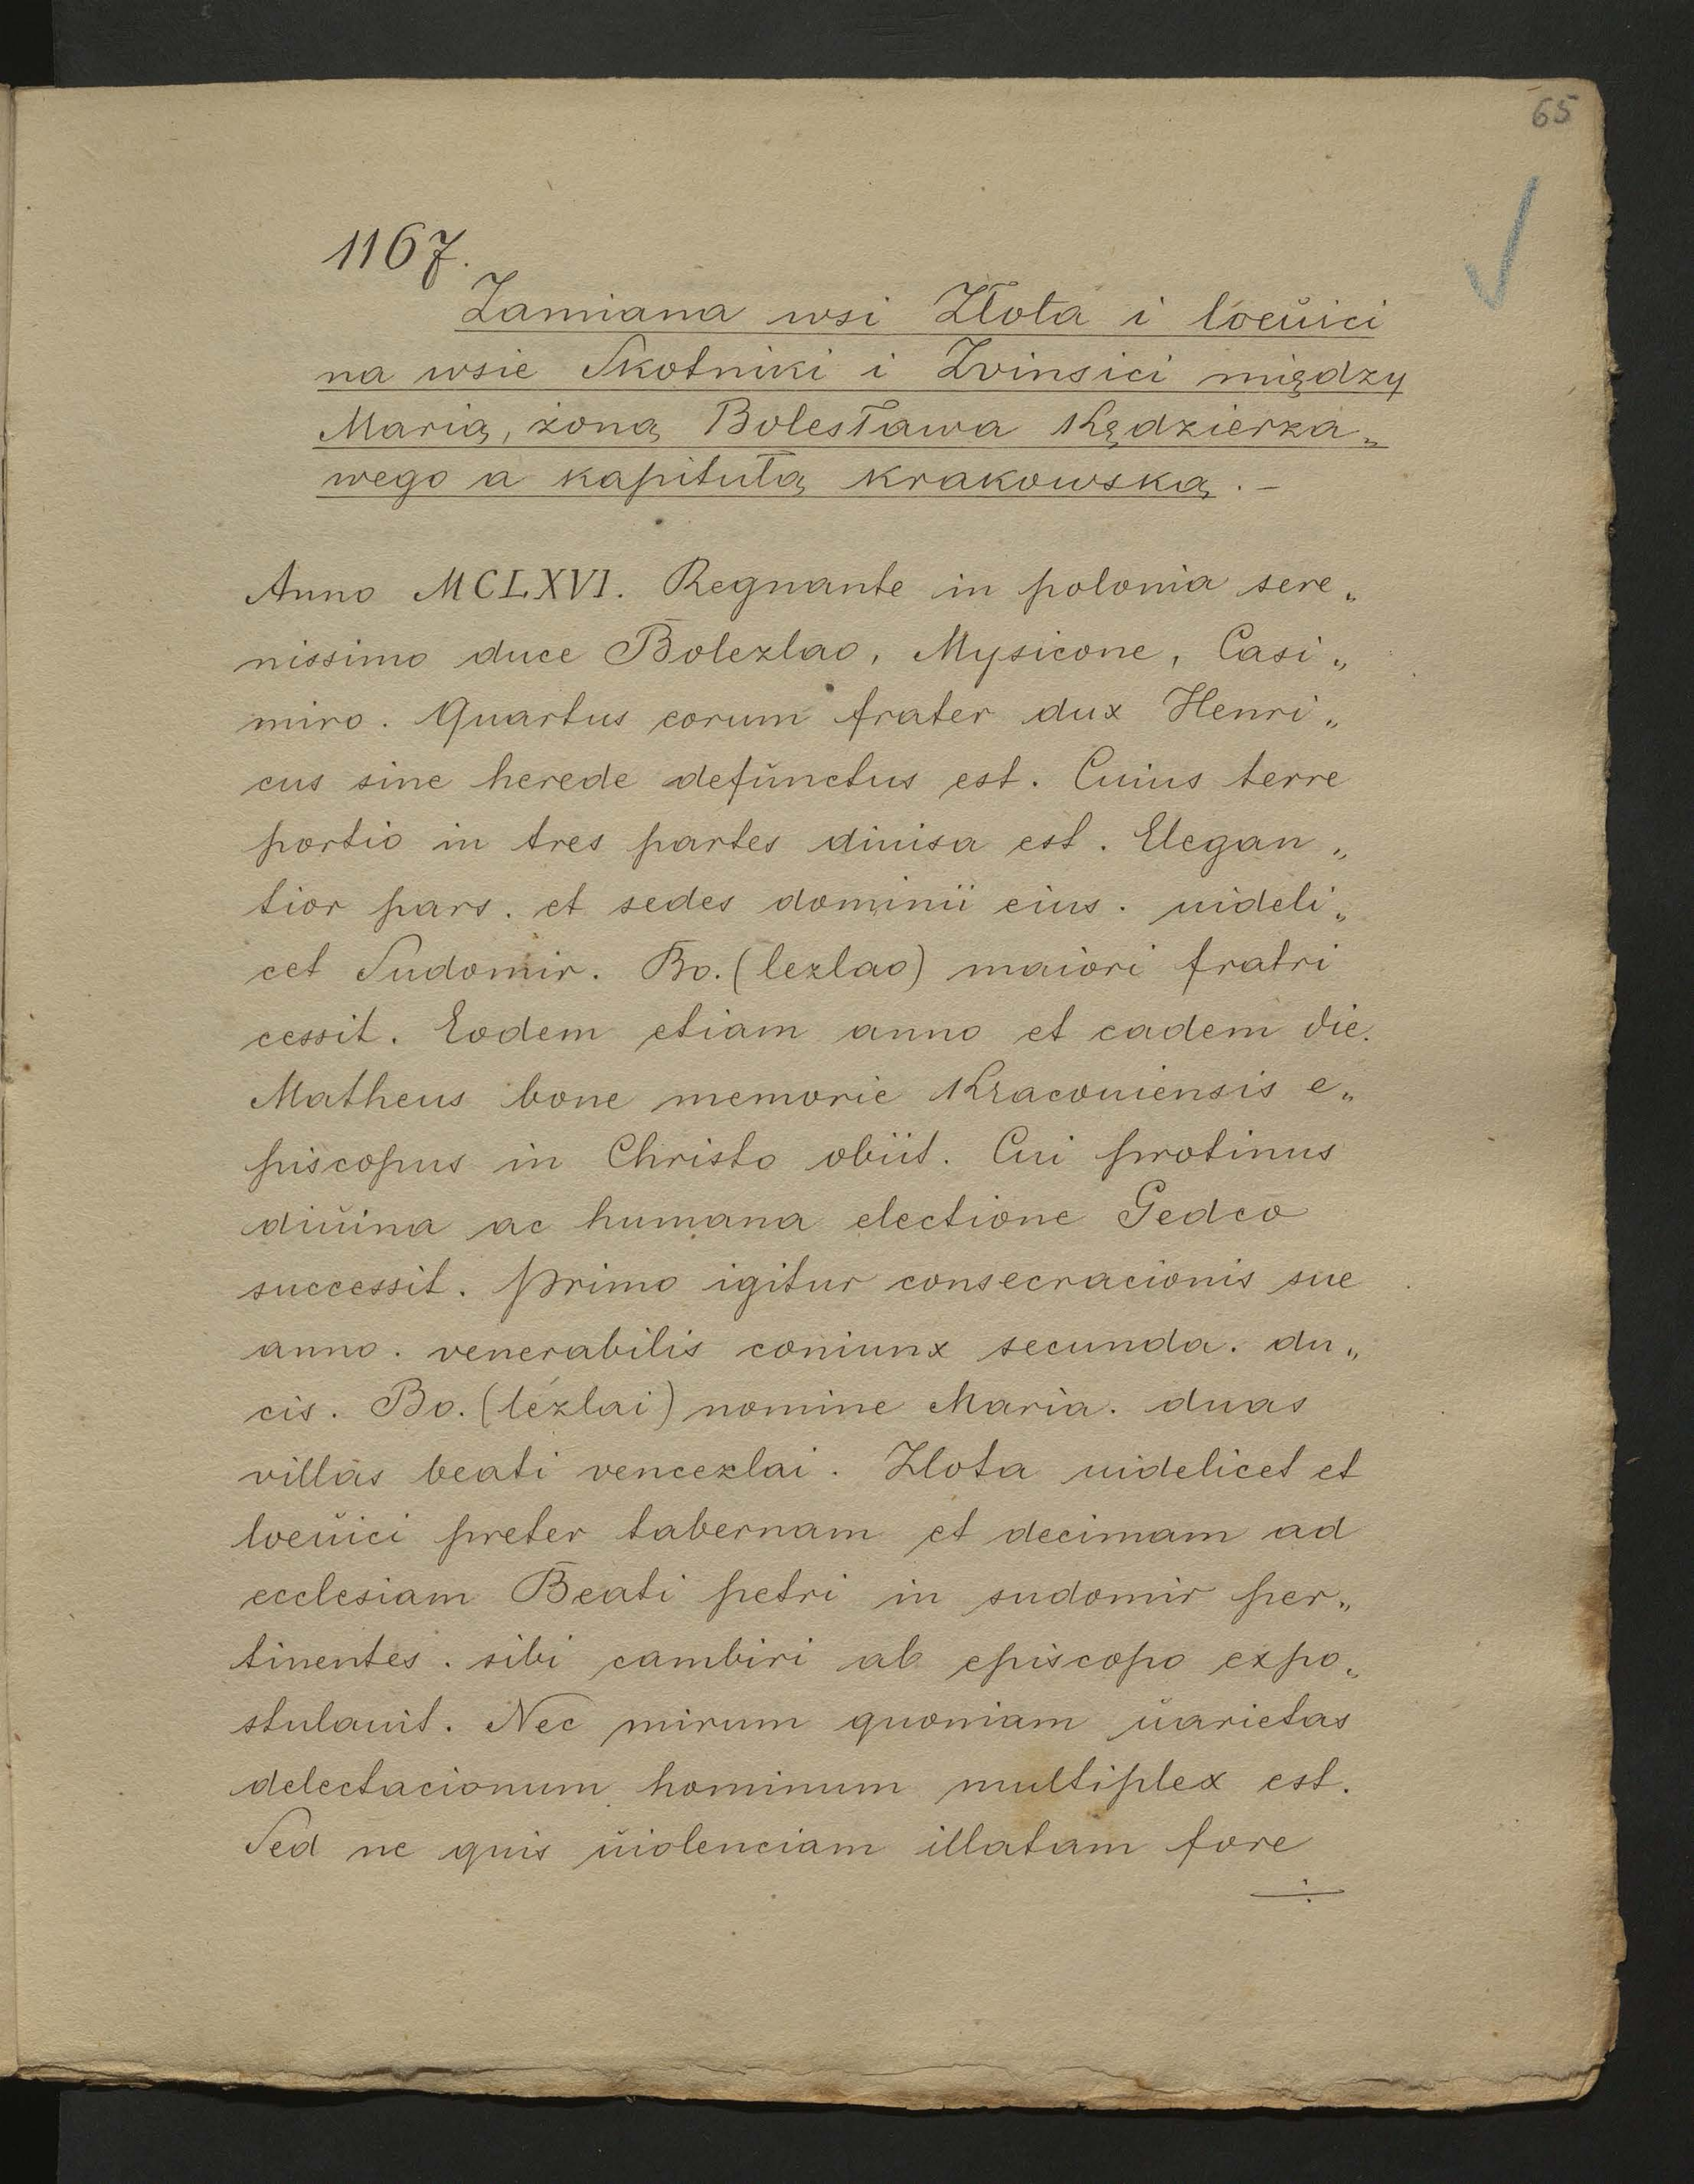 65
1167.
Zamiana wsi Złota i loeŭici
na wsie Skotniki i Zvinsici między
Marią, żoną Bolesława Kędzierza„
wego a kapitułą krakowską. —
Anno MCLXVI. Regnante in polonia sere„
nissimo duce Bolezlao, Mysicone, Casi„
miro. Quartus eorum frater dux Henri„
cus sine herede defŭnctus est. Cuius terre
portio in tres partes diuisa est. Elegan„
tior pars. et sedes dominii eius. uideli„
cet Sudomir. Bo. (lezlao) maiori fratri
cessit. Eodem etiam anno et eadem die.
Matheus bone memorie Kracouiensis e„
piscopus in Christo obiit. Cui protinus
diŭina ac humana electione Gedco
successit. Primo igitur consecracionis sue
anno. venerabilis coniunx secunda. du„
cis. Bo. (lezlai) nomine Maria. duas
villas beati vencezlai. Zlota uidelicet et
loeŭici preter tabernam et decimam ad
ecclesiam Beati petri in sudomir per„
tinentes. sibi cambiri ab episcopo expo„
stulauit. Nec mirum quoniam ŭarietas
delectacionum hominum multiplex est.
Sed ne quis ŭiolenciam illatam fore